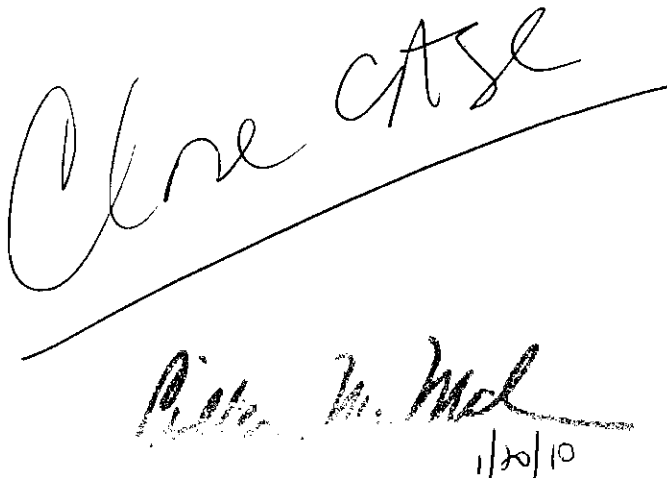 Close CASe
M.
1/20/10